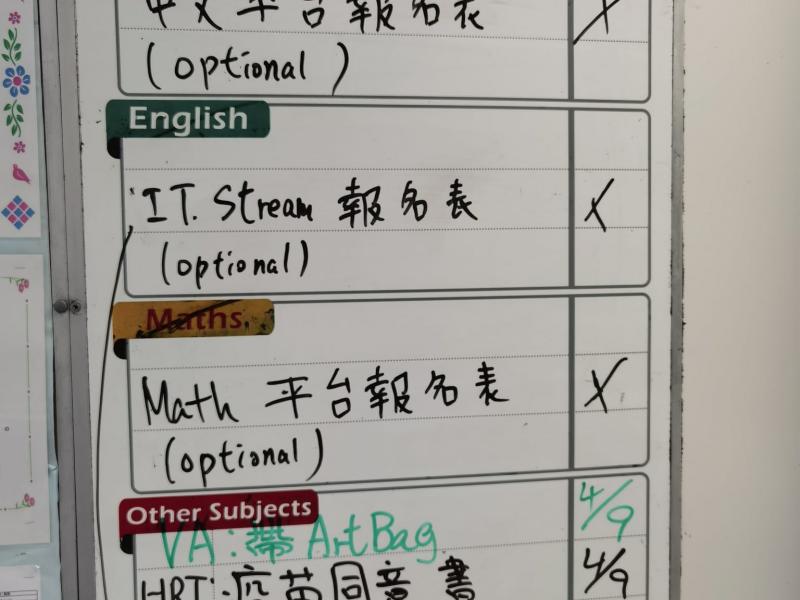 中文平台報名表 X
(optional)
English
I.T. Stream 報名表 X
(optional)
Maths
Math 平台報名表 X
(optional)
Other Subjects
VA:帶 Art Bag 4/9
HRT:疫苗同意書 4/9